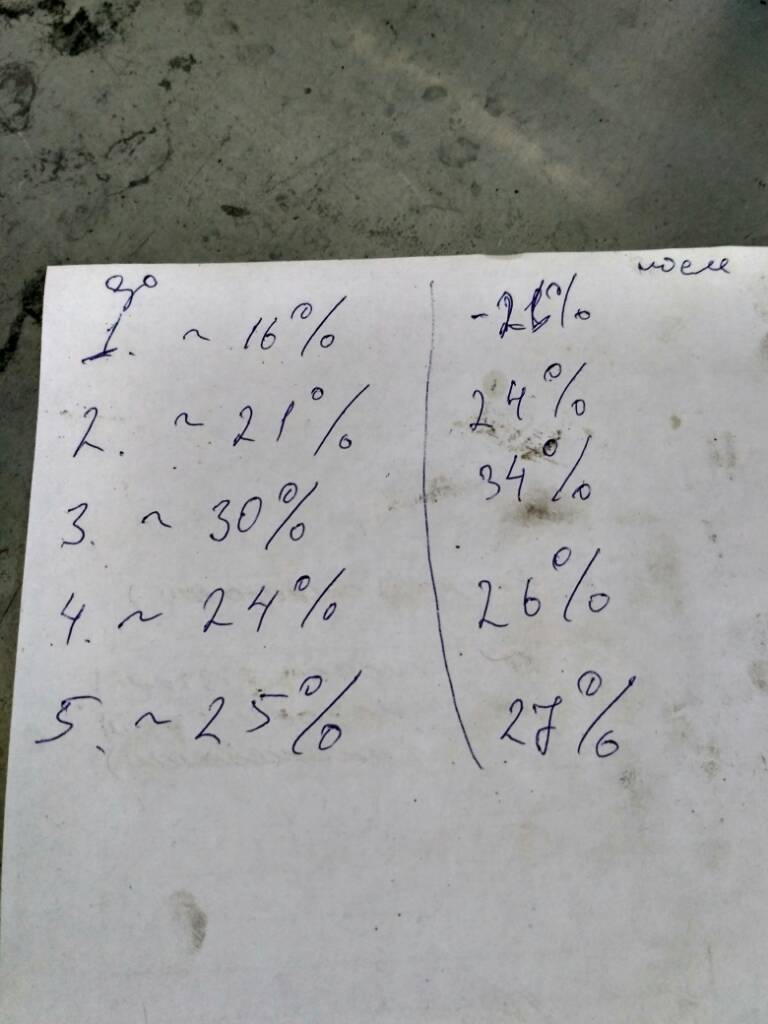 до после
1. ~ 16% -21%
2. ~ 21% 24%
3. ~ 30% 34%
4. ~ 24% 26%
5. ~ 25% 27%